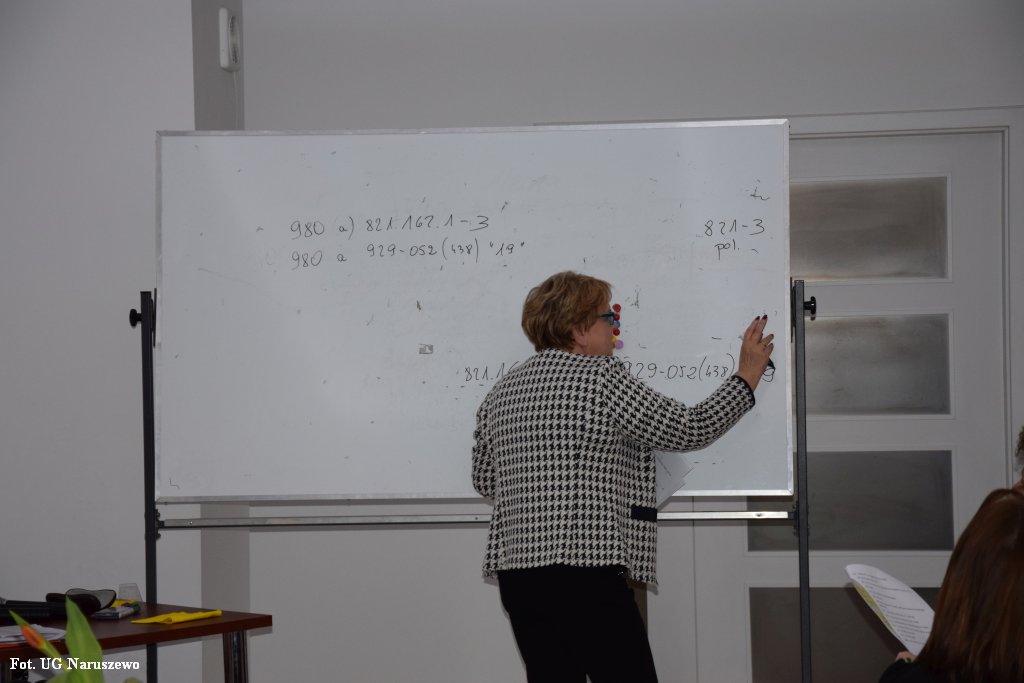 980 a) 821.162.1-3
980 a 929-052(438) "19"
821-3
pol.
929-052(438)
Fot. UG Naruszewo